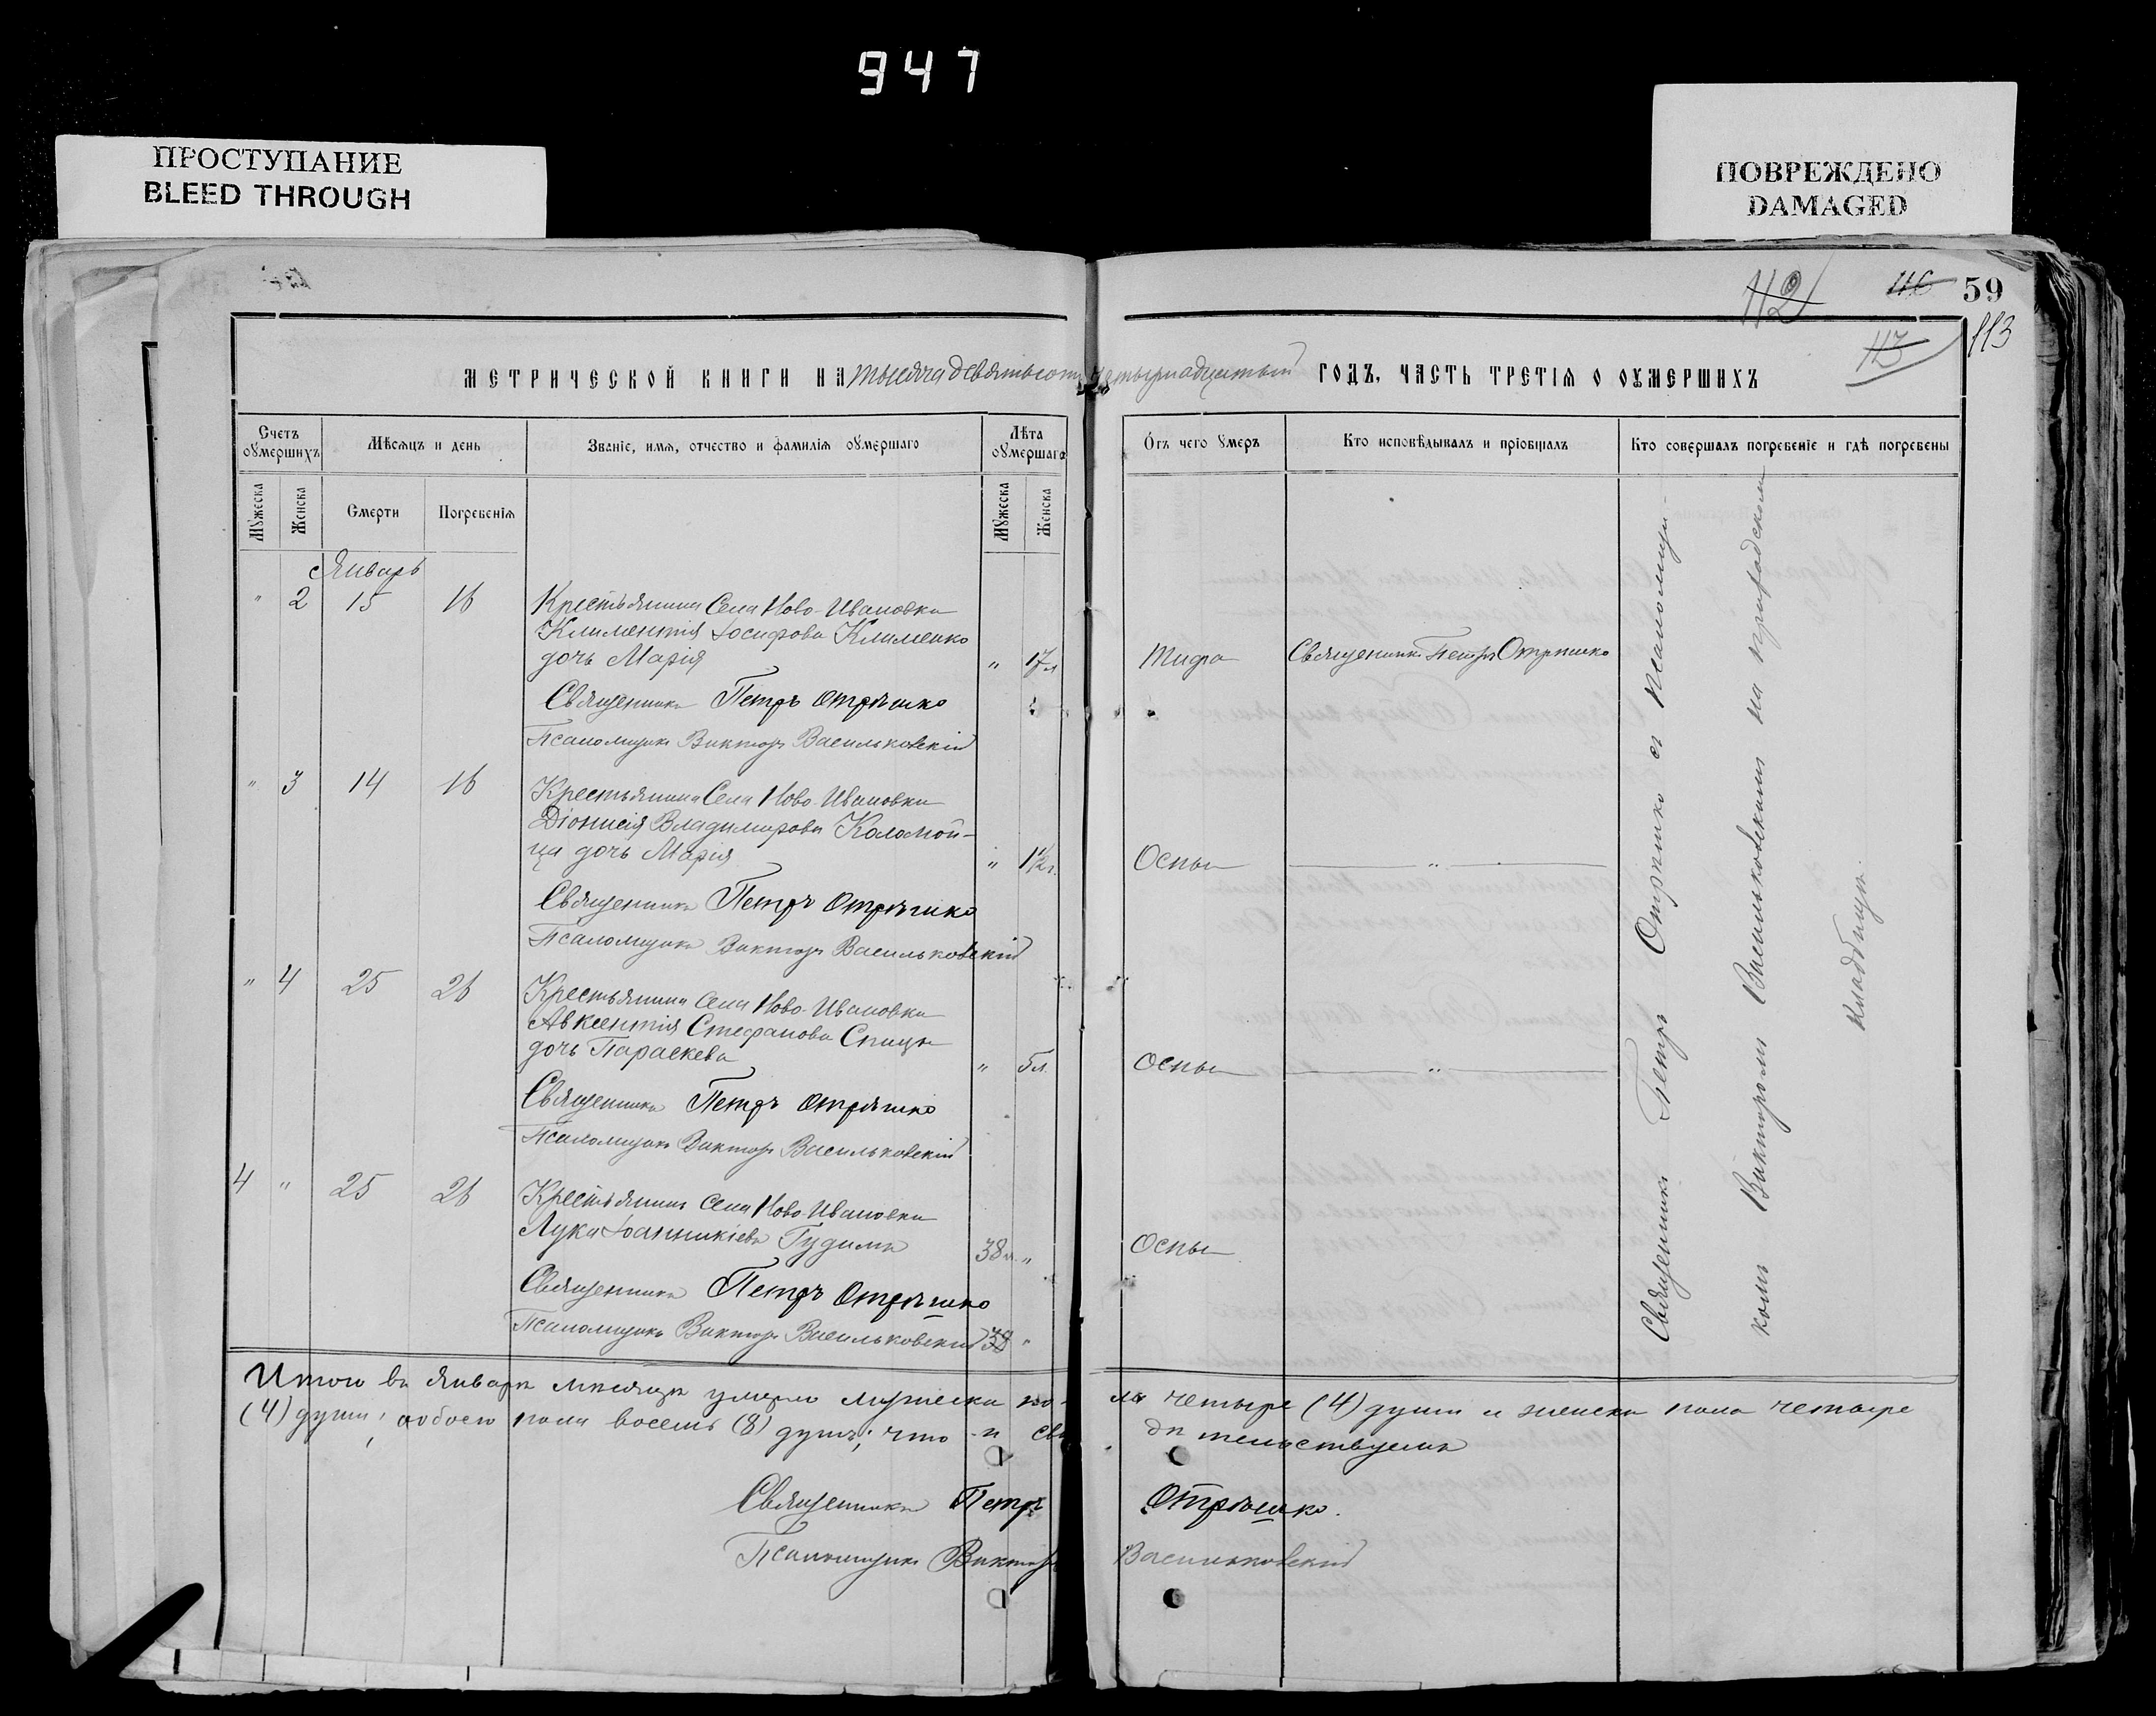 947
ПРОСТУПАНИЕ
BLEED THROUGH
ПОВРЕЖДЕНО
DAMAGED
112
59
113
113
МЕТРИЧЕСКОЙ КНИГИ НА тысяча девятьсотъ четырнадцатый ГОДЪ, ЧАСТЬ ТРЕТІѦ О ОУМЕРШИХЪ
Счетъ оумершихъ
Мѣсяцъ и день
Званіе, имѧ, отчество и фамиліѧ оумершаго
Лѣта оумершаго
Отъ чего умеръ
Кто исповѣдывалъ и пріобщалъ
Кто совершалъ погребеніе и гдѣ погребены
Мужеска
Женска
Смерти
Погребеніѧ
Мужеска
Женска
Январь
" 2 15 16 Крестьянина села Ново-Ивановки
Климентія Іосифова Клименко
дочь Марія " 17 л Тифа Священникъ Петръ Отрѣшко
Священникъ Петръ Отрѣшко
Псаломщикъ Виктор Васильковскій
" 3 14 16 Крестьянина Села Ново-Ивановки
Діонисія Владимирова Коломой-
ца дочь Марія " 1½ г. Оспы "
Священникъ Петръ Отрѣшко
Псаломщикъ Виктор Васильковскій
" 4 25 26 Крестьянина села Ново-Ивановки
Авксентія Стефанова Спицы
дочь Параскева " 5 л. Оспы "
Священникъ Петръ Отрѣшко
Псаломщикъ Виктор Васильковскій
4 " 25 26 Крестьянинъ села Ново-Ивановки
Лука Іоанникіевъ Гудима 38 л. " Оспы
Священникъ Петръ Отрѣшко
Псаломщикъ Виктор Васильковскій 38 "
Священникъ Петръ Отрѣшко съ псаломщи-
комъ Викторомъ Васильковскимъ на приходскомъ
кладбищѣ.
Итого въ Январѣ мѣсяцѣ умерло мужеска по-ла четыре (4) души и женска пола четыре
(4) души, обоего пола восемь (8) душъ; что и свидѣтельствуемъ
Священникъ Петръ Отрѣшко.
Псаломщикъ Викторъ Васильковскій